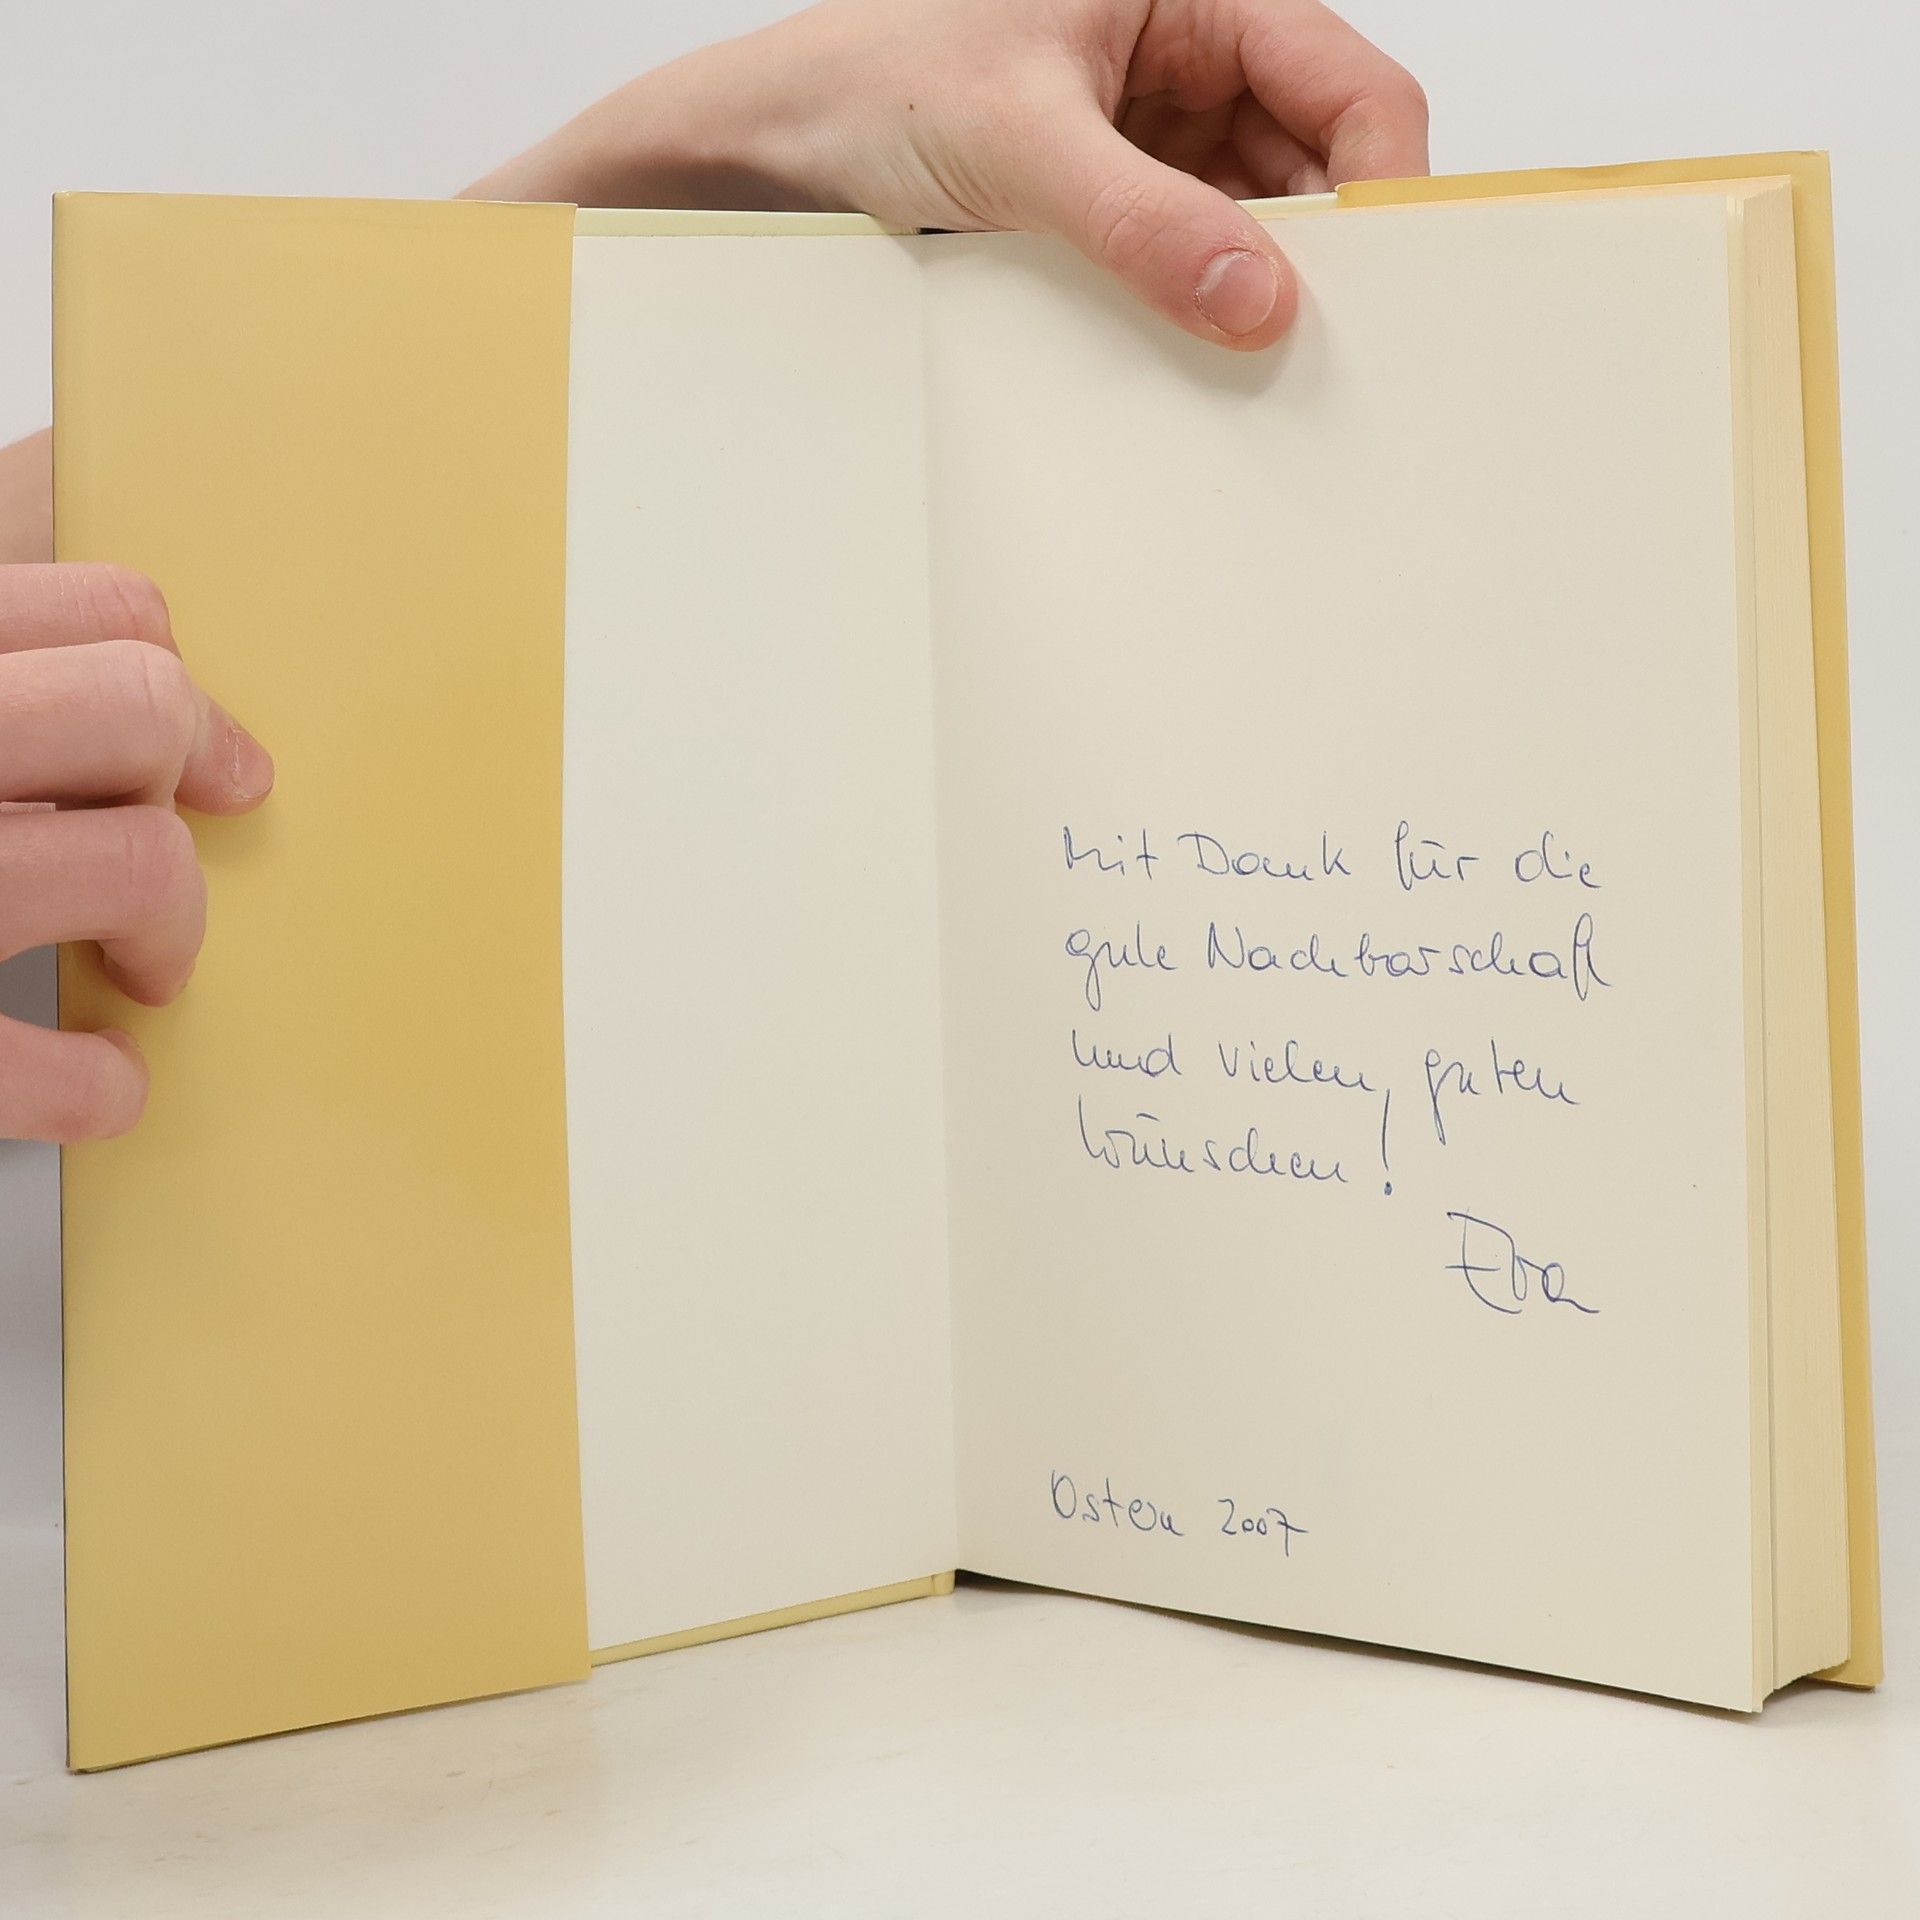 Mit Dank für die
gute Nachbarschaft
und vielen, guten
Wünschen!
Eva
Ostern 2007